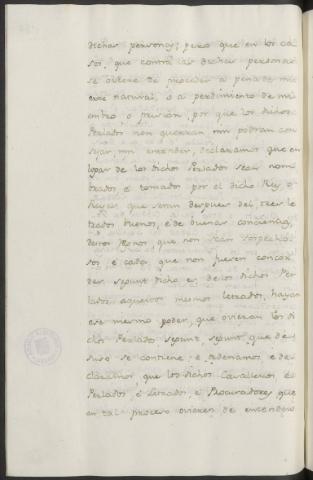 dichas personas; pero que en los ca
sos, que contra las dichas personas
se oviere de proceder a pena de mu
erte natural, o a perdimiento de mi
embro, o prision, por que los dichos
Perlados non querran nin podran con
sejar nin entender, declaramos que en
lugar de los dichos Perlados sean nom
brados, e tomados por el dicho Rey, o
Reyes que seran despues del, tres le
trados buenos, e de buenas conciencias,
destos Reynos, que non sean sospecho
sos; e cada que non fueren concor
des segunt dicho es de los dichos Per
lados, aquellos mesmos letrados, hayan
ese mesmo poder, que ovieran los di
chos Perlados segunt, segunt, que de
suso se contiene: e ordenamos, e de
claramos, que los dichos Cavalleros, e
Perlados, e Letrados, e Procuradores que
en tal proceso ovieren de entender